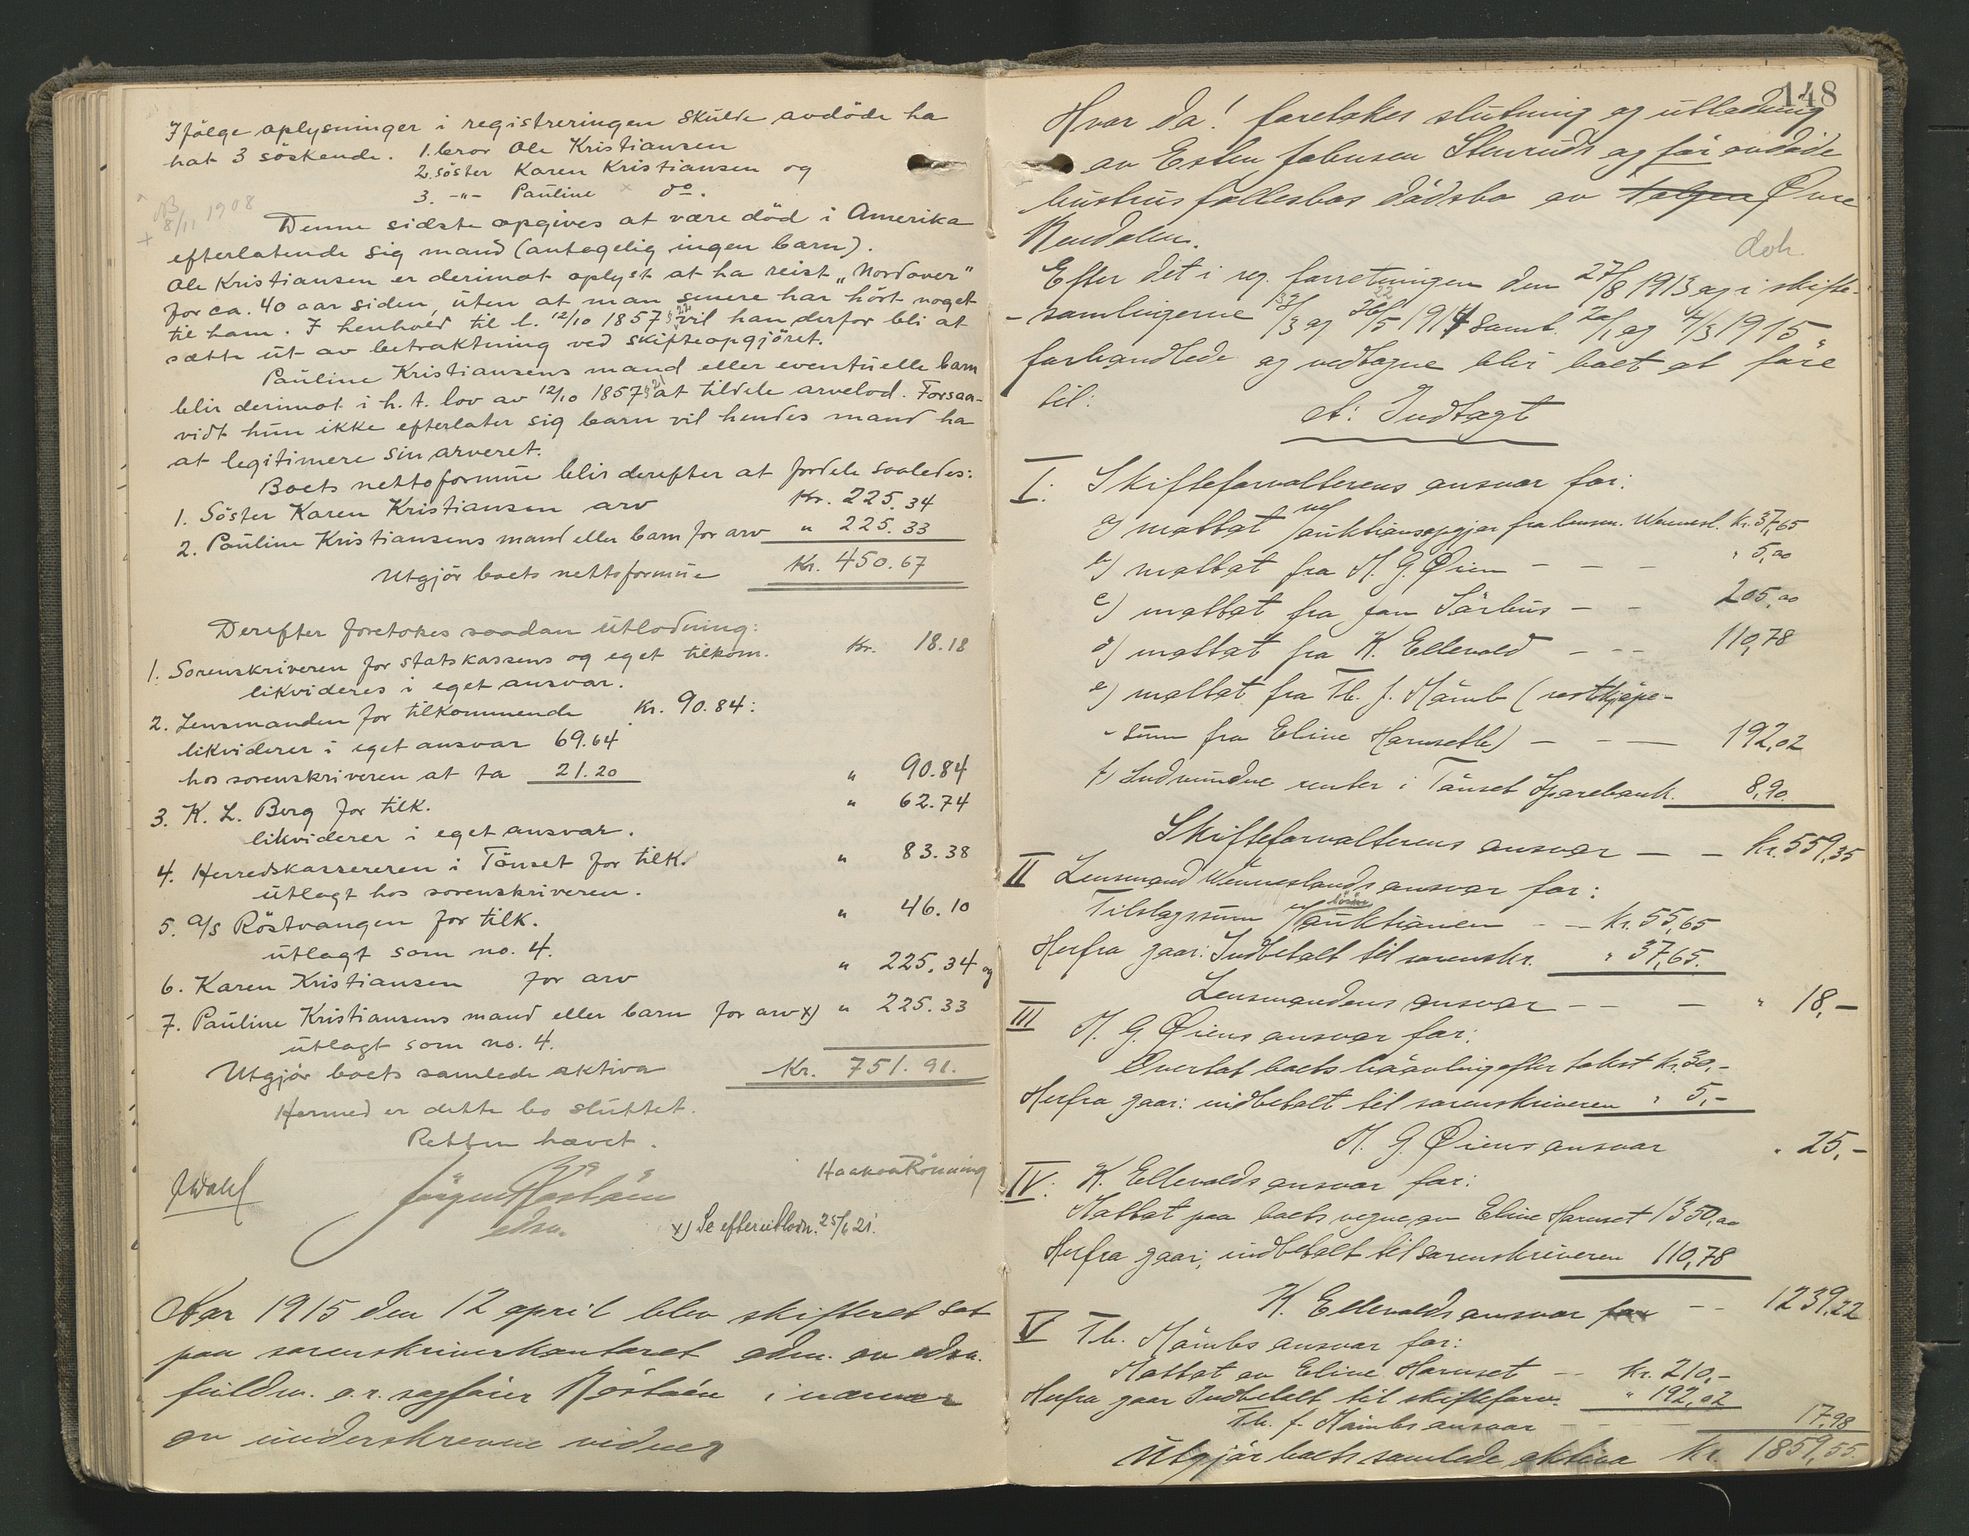 Ifölge oplysninger i registreringen skulde avdöde ha
hat 3 söskende. 1. bror Ole Kristiansen
2. söster Karen Kristiansen og
3. -"- Pauline do.
NB 8/11 1908
Denne sidste opgives at være död i Amerika
efterlatende sig mand (antagelig ingen barn).
Ole Kristiansen er derimot oplyst at ha reist "Nordover"
for ca. 40 aar siden, uten at man senere har hört noget
til ham. I henhold til l. 12/10 1857 § 21 vil han derfor bli at
sætte ut av betraktning ved skifteopgjöret.
Pauline Kristiansens mand eller eventuelle barn
blir derimot i h. t. lov av 12/10 1857 § 21 at tildele arvelod. Forsaa-
vidt hun ikke efterlater sig barn vil hendes mand ha
at legitimere sin arveret.
Boets nettoformue blir derefter at fordele saaledes:
1. Söster Karen Kristiansen arv Kr. 225.34
2. Pauline Kristiansens mand eller barn for arv " 225.33
Utgjör boets nettoformue Kr. 450.67
Derefter foretokes saadan utlodning:
1. Sorenskriveren for statskassens og eget tilkom. Kr. 18.18
likvideres i eget ansvar.
2. Lensmanden for tilkommende Kr. 90.84:
likviderer i eget ansvar 69.64
hos sorenskriveren at ta 21.20 " 90.84
3. K. L. Berg for tilk. " 62.74
likviderer i eget ansvar.
4. Herredskassereren i Tönset for tilk. " 83.38
utlagt hos sorenskriveren.
5. A/S Röstvangen for tilk. " 46.10
utlagt som no. 4.
6. Karen Kristiansen for arv " 225.34 og
7. Pauline Kristiansens mand eller barn for arv x) " 225.33
utlagt som no. 4.
Utgjör boets samlede aktiva Kr. 751.91.
Hermed er dette bo sluttet.
Retten hævet.
Jörgen Röstöen
edsv.
Haakon Rönning
x) Se efterutlodn. 25/6 21.
Aar 1915 den 12 april blev skifteret sat
paa sorenskriverkontoret adm. av edsv.
fuldm. o.r. sagförer Röstöen i nærvær
av underskrevne vidner
148
Hvor da! foretokes slutning og utlodning
av Esten Johnsen Stenruds og før avdøde
hustrus fællesbos dødsbo av Øvre
Rendalen.
doh.
Efter det i reg. forretningen den 27/8 1913 og i skifte-
samlingerne 13/3 og 26/5 1914 samt 20/1 og 4/3 1915
forhandlede og vedtagne blir boet at føre
til:
A: Indtægt
I: Skifteforvalterens ansvar for:
a) mottat ved auktionsopgjør fra lensm. Wennesl. Kr. 37,65
b) mottat fra H. G. Øien - - - " 5,00
c) mottat fra Jon Sörhus - - 205,00
d) mottat fra K. Ellevold - - - 110,78
e) mottat fra Th. J. Høimb (restkjøpe-
sum fra Eline Harnsetb) - - - 192,02
f) Indvundne renter i Tønset Sparebank. 8,90
Skifteforvalterens ansvar - - Kr. 559,35
II Lensmand Wenneslands ansvar for:
Tilslagssum v/ løsøreauktionen - - Kr. 55,65
Herfra gaar: Indbetalt til sorenskr. " 37,65.
Lensmandens ansvar - - - " 18,-
III H. G. Øiens ansvar for:
Overtat boets efter takst Kr. 30,-
Herfra gaar: indbetalt til sorenskriveren " 5,-
H. G. Øiens ansvar " 25,-
IV: K. Ellevolds ansvar for:
Mottat paa boets vegne av Eline Harnset 1350,00
Herfra gaar: indbetalt til sorenskriveren 110,78
K. Ellevolds ansvar - - 1239,22
V Th. Høimbs ansvar for:
Mottat av Eline Harnset - - Kr. 210,-
Herfra gaar Indbetalt til skifteforv. " 192,02
Th. J. Høimbs ansvar 17,98
Utgjør boets samlede aktiva Kr. 1859,55.